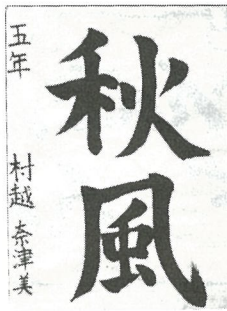 秋風
五年 村越 奈津美